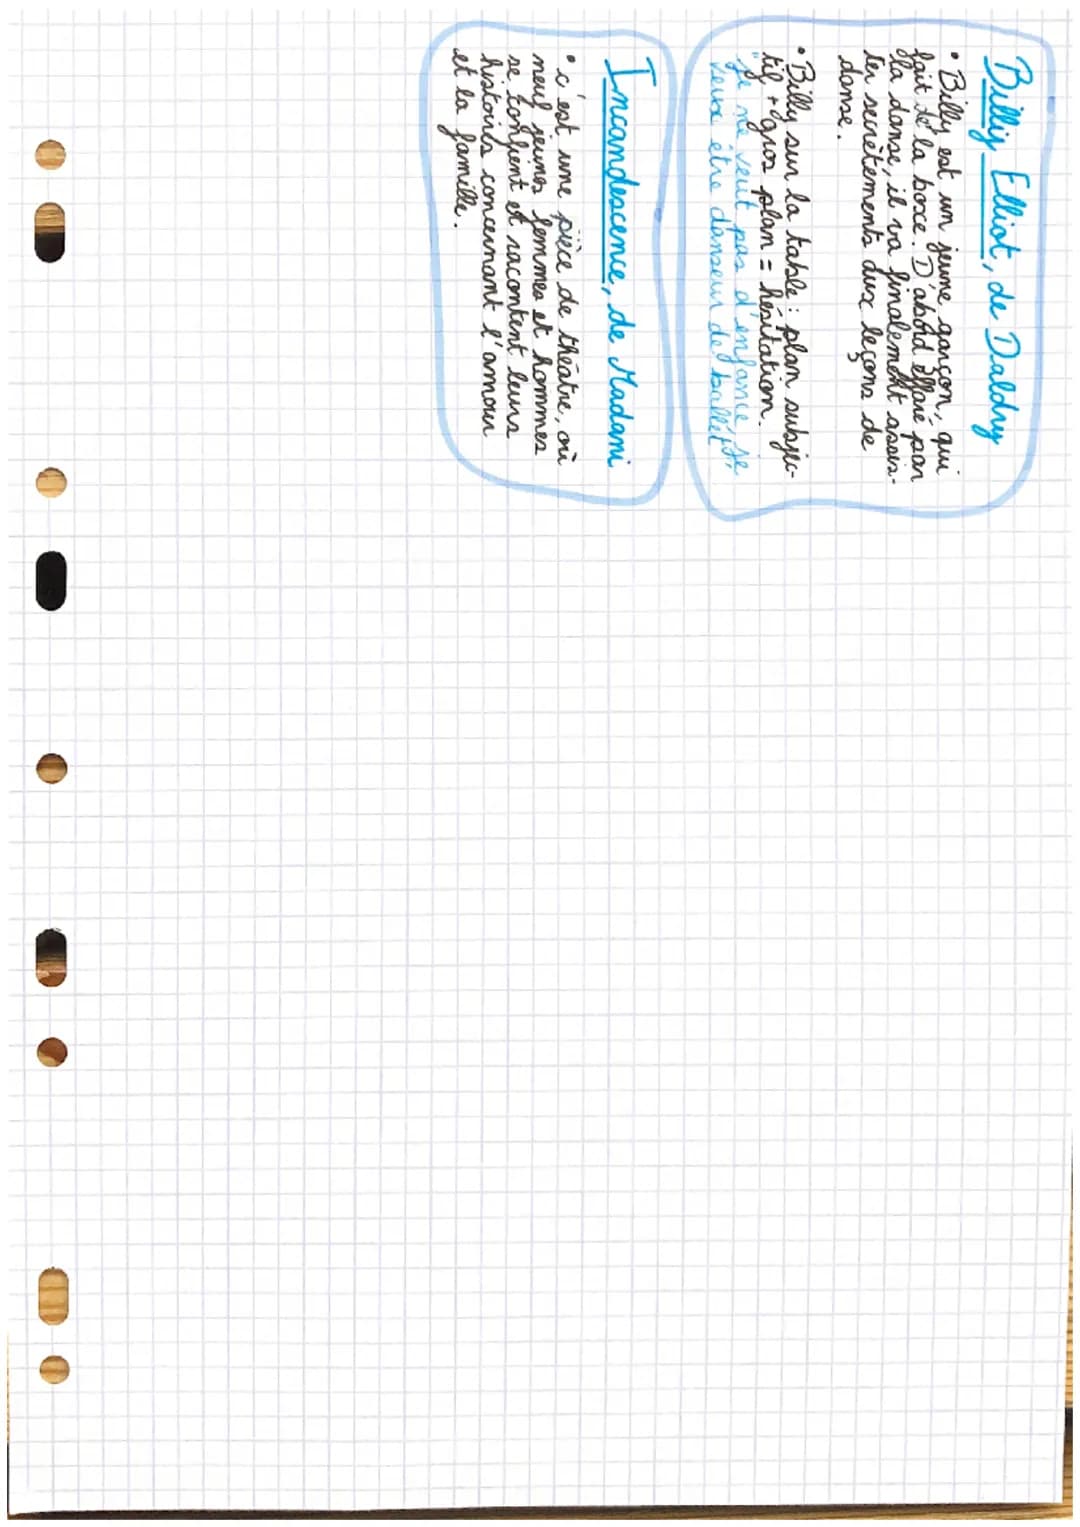 Billy Elliot, de Daldry
• Billy est un jeune garçon, qui
fait de la boxe. D'abord effaré par
la danse, il va finalement assis-
ter secrètements aux leçons de
danse.
• Billy sur la table : plan subjec-
tif + gros plan = hésitation.
"Je ne veut pas d'enfance, je
veux être danseur de ballet".
Incandescence, de Madani
• c'est une pièce de théâtre, où
neuf jeunes femmes et hommes
se confient et racontent leurs
histoires concernant l'amour
et la famille.